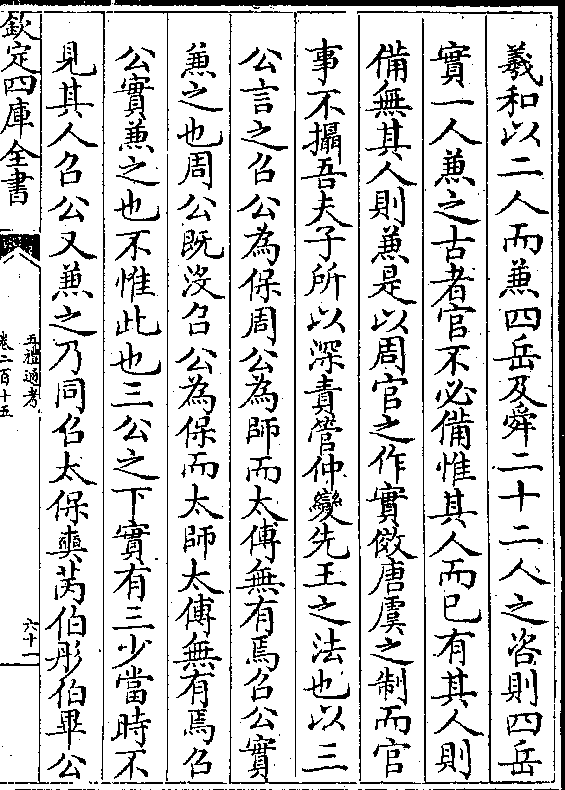 羲和以二人而兼四岳及舜二十二人之咨則四岳
實一人兼之古者官不必備惟其人而已有其人則
備無其人則兼是以周官之作實倣唐虞之制而官
事不攝吾夫子所以深責管仲變先王之法也以三
公言之召公為保周公為師而太傅無有焉召公實
兼之也周公既沒召公為保而太師太傅無有焉召
公實兼之也不惟此也三公之下實有三少當時不
見其人召公又兼之乃同召太保奭芮伯彤伯畢公
欽定四庫全書
五禮通考
卷二百十五
六十一